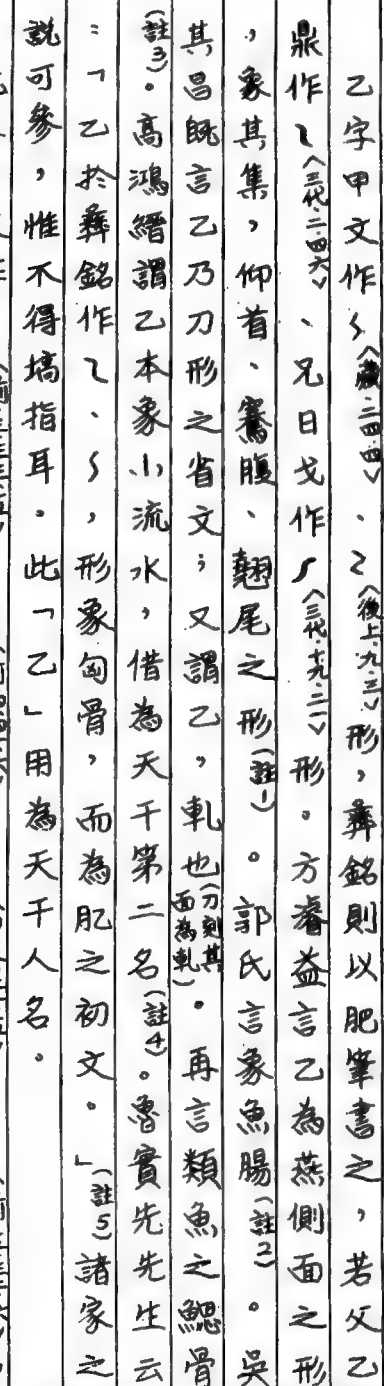 乙字甲文作〈藏.二四四〉、〈後上.九.三〉形，彝銘則以肥筆書之，若父乙
鼎作〈三代.二.四六〉、兄日戈作〈三代.十九.二一〉形。方濬益言乙為燕側面之形
，象其集，仰首、騫腹、翹尾之形（註1）。郭氏言象魚腸（註2）。吳
其昌旣言乙乃刀形之省文；又謂乙，軋也（刀刻其面為軋）。再言類魚之鰓骨
（註3）。高鴻縉謂乙本象小流水，借為天干第二名（註4）。魯實先先生云
：「乙於彝銘作、，形象匈骨，而為肊之初文。」（註5）諸家之
說可參，惟不得塙指耳。此「乙」用為天干人名。